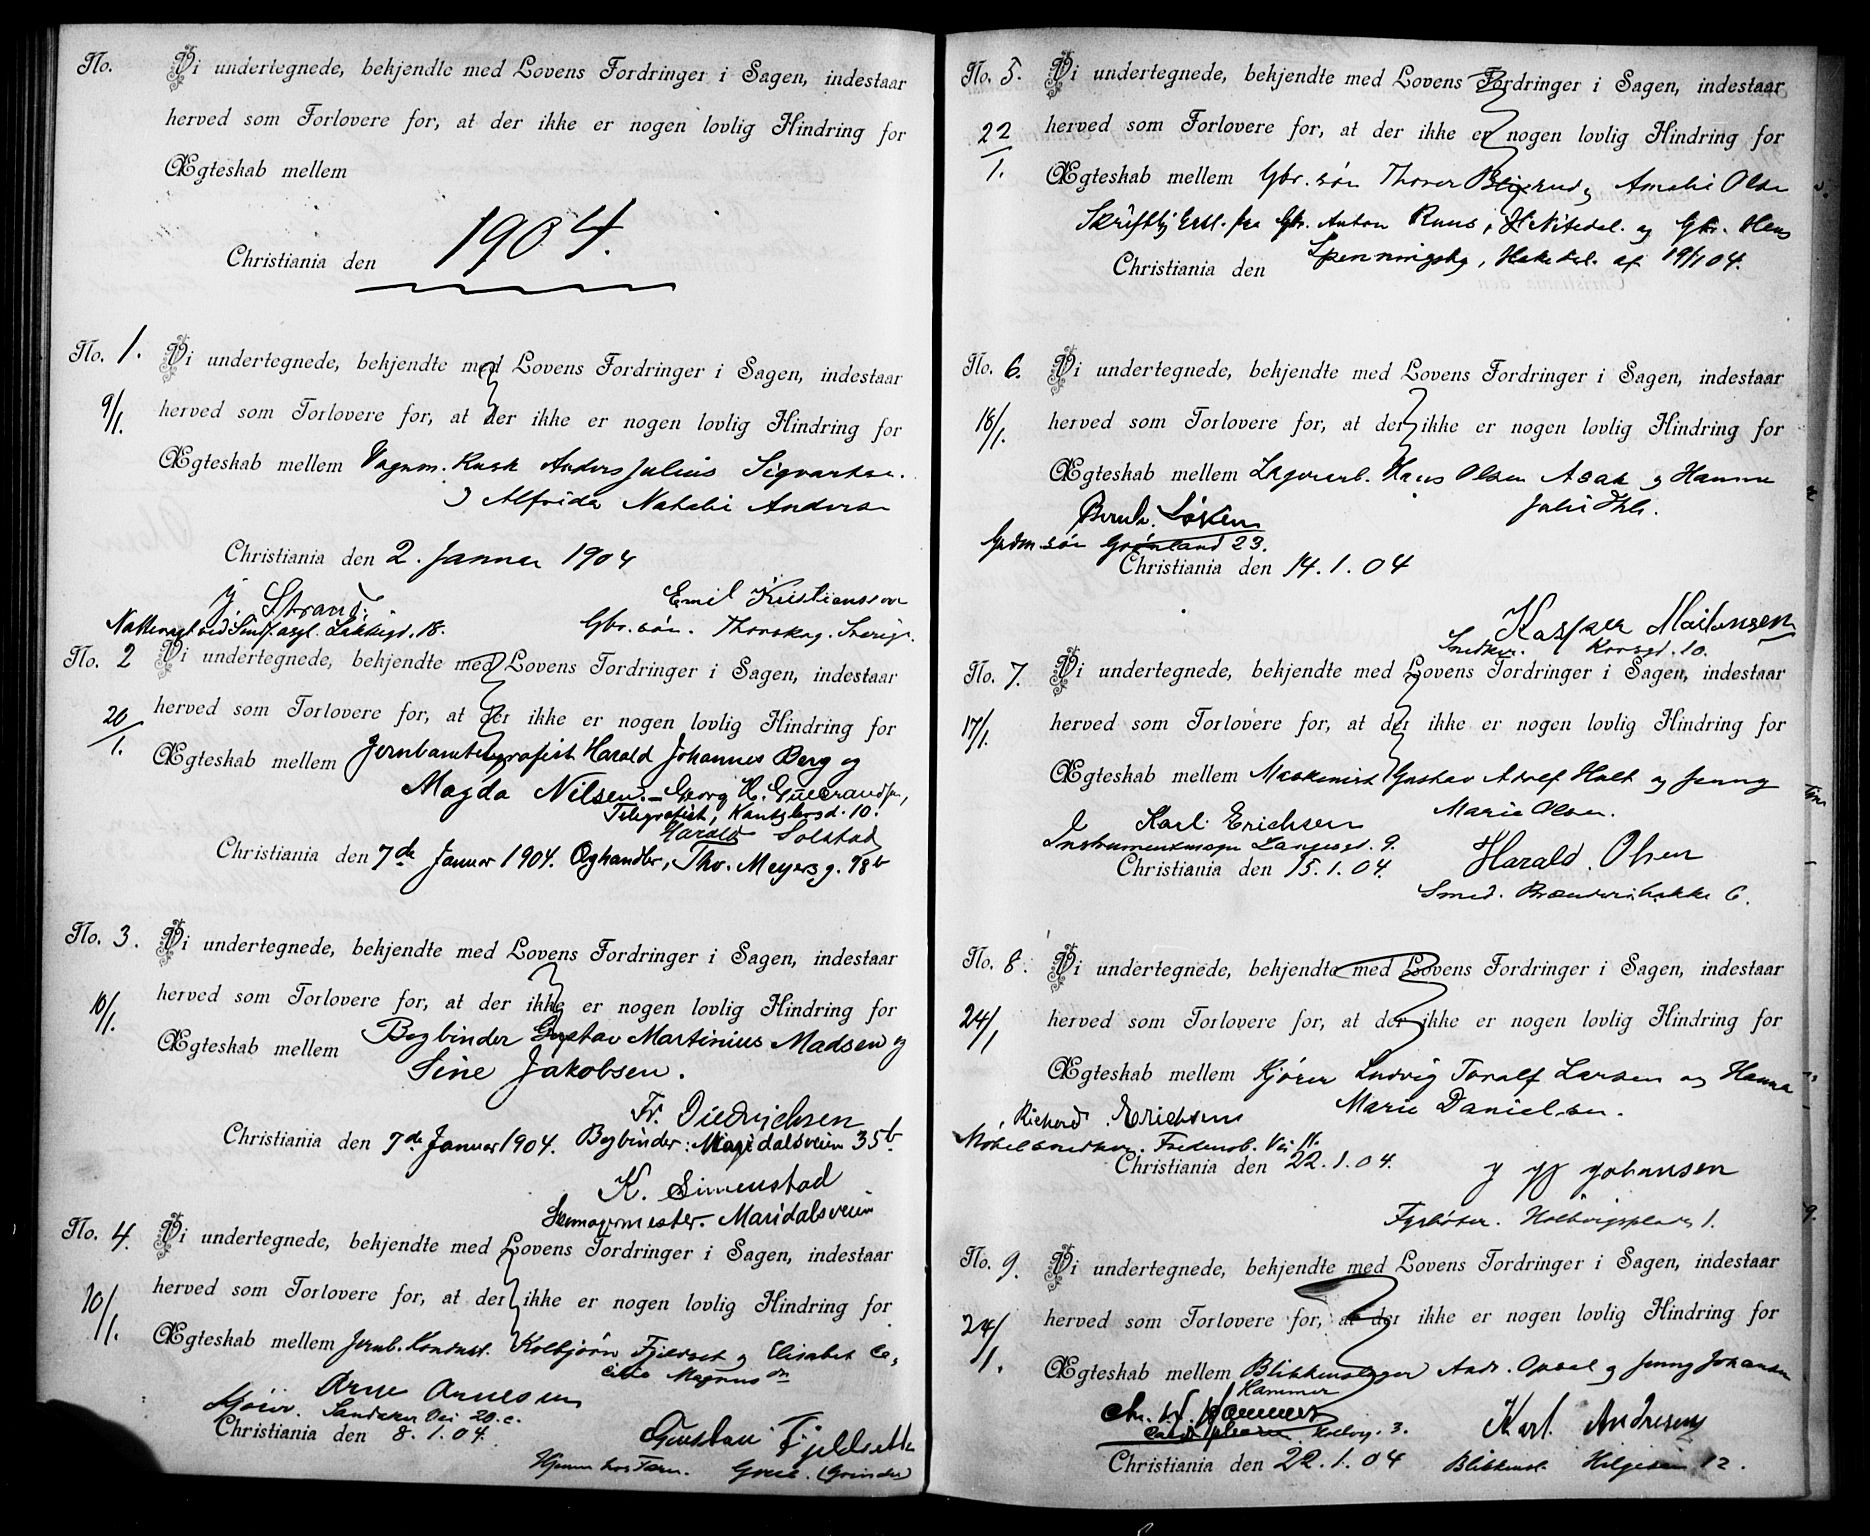 No. Vi undertegnede, bekjendte med Lovens Fordringer i Sagen, indestaar
herved som Forlovere for, at der ikke er nogen lovlig Hindring for
Ægteskab mellem
1904.
Christiania den
No. 1. Vi undertegnede, bekjendte med Lovens Fordringer i Sagen, indestaar
9/1. herved som Forlovere for, at der ikke er nogen lovlig Hindring for
Ægteskab mellem Vognm. Kusk Anders Julius Sigvartsen
Alfrida Natalie Anders
Christiania den 2. Januar 1904
J. Strand. Emil Kristiansson
Nattevagt ved Sindf. asyl. Lakkegd. 18. Gbr. søn. Thorskog. Sverige.
No. 2 Vi undertegnede, bekjendte med Lovens Fordringer i Sagen, indestaar
20/1. herved som Forlovere for, at der ikke er nogen lovlig Hindring for
Ægteskab mellem Jernbanetelegrafist Harald Johannes Berg og
Magda Nilsen. – Georg H.
Telegrafist, 10.
Harald Solstad
Christiania den 7de Januar 1904. Øghandler, Thv. Meyers g. 78b
No. 3. Vi undertegnede, bekjendte med Lovens Fordringer i Sagen, indestaar
10/1. herved som Forlovere for, at der ikke er nogen lovlig Hindring for
Ægteskab mellem Bogbinder Gustav Martinius Madsen og
Sine Jakobsen.
Fr. Diedrichsen
Christiania den 7de Januar 1904. Bogbinder: Maridalsveien 35b.
K. Simenstad
Skomagermester. Maridalsveien
No. 4. Vi undertegnede, bekjendte med Lovens Fordringer i Sagen, indestaar
10/1. herved som Forlovere for, at der ikke er nogen lovlig Hindring for
Ægteskab mellem Jernb. Konduct. Kolbjørn Fjeldset og Elisabet Ce-
cilie Magnus
Arne Arnesen
Kjører. Sandaker Vei 20. c.
Christiania den 8. 1. 04. Gustav Fjeldsette
Grue. (Grinder)
No. 5. Vi undertegnede, bekjendte med Lovens Fordringer i Sagen, indestaar
22/1. herved som Forlovere for, at der ikke er nogen lovlig Hindring for
Ægteskab mellem Gbr. søn Thorer og Amalie Olsen
Skriftlig Erkl. fra Gbr. Anton Ruus, Nitedal. og Gbr. Hans
Christiania den Spenningsby, Hakedal. af 19/1 04.
No. 6. Vi undertegnede, bekjendte med Lovens Fordringer i Sagen, indestaar
18/1. herved som Forlovere for, at der ikke er nogen lovlig Hindring for
Ægteskab mellem Lagerarb. Hans Olsen Asak og Hanna
Bernh. Løken Julie Ihle.
Grdm. søn Grønland 23.
Christiania den 14. 1. 04
Kasper Mortensen
Snedker. Korsgd. 10.
No. 7. Vi undertegnede, bekjendte med Lovens Fordringer i Sagen, indestaar
17/1. herved som Forlovere for, at der ikke er nogen lovlig Hindring for
Ægteskab mellem Maskinist Gustav Adolf Holt og Jenny
Karl Erichsen Marie Olsen.
Instrumentmager Langesgd. 9.
Christiania den 15. 1. 04. Harald Olsen
Smed. Brænderibakke 6.
No. 8. Vi undertegnede, bekjendte med Lovens Fordringer i Sagen, indestaar
24/1 herved som Forlovere for, at der ikke er nogen lovlig Hindring for
Ægteskab mellem Kjører Ludvig Toralf Larsen og Hanna
Richard Erichsen Marie Danielsen.
Møbelsnedker. Fredensb. Vei
Christiania den 22. 1. 04. Johansen
Fyrbøter. Holbergsplads 1.
No. 9. Vi undertegnede, bekjendte med Lovens Fordringer i Sagen, indestaar
24/1. herved som Forlovere for, at der ikke er nogen lovlig Hindring for
Ægteskab mellem Blikkenslager Andr. Opsal og Jenny Johansen
Hammer
Chr. Hammer Karl Andresen
Holbergs. 3.
Christiania den 22. 1. 04 Blikkensl. 12.